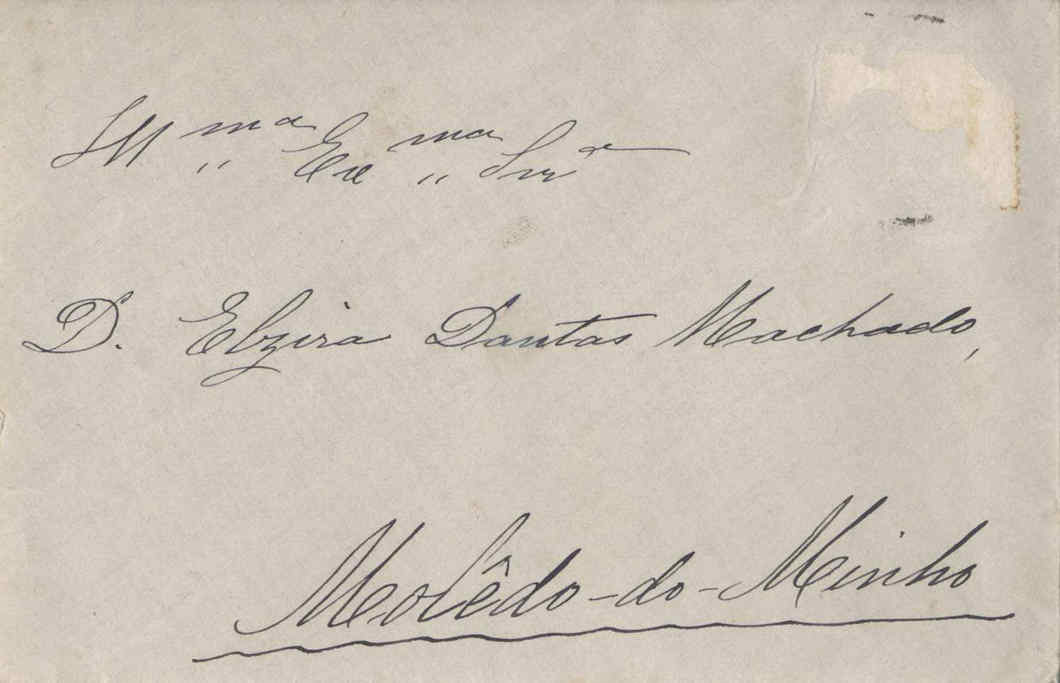 Ill^ma „ Ex^ma „ Snr^a
D. Elzira Dantas Machado,
Molêdo-do-Minho